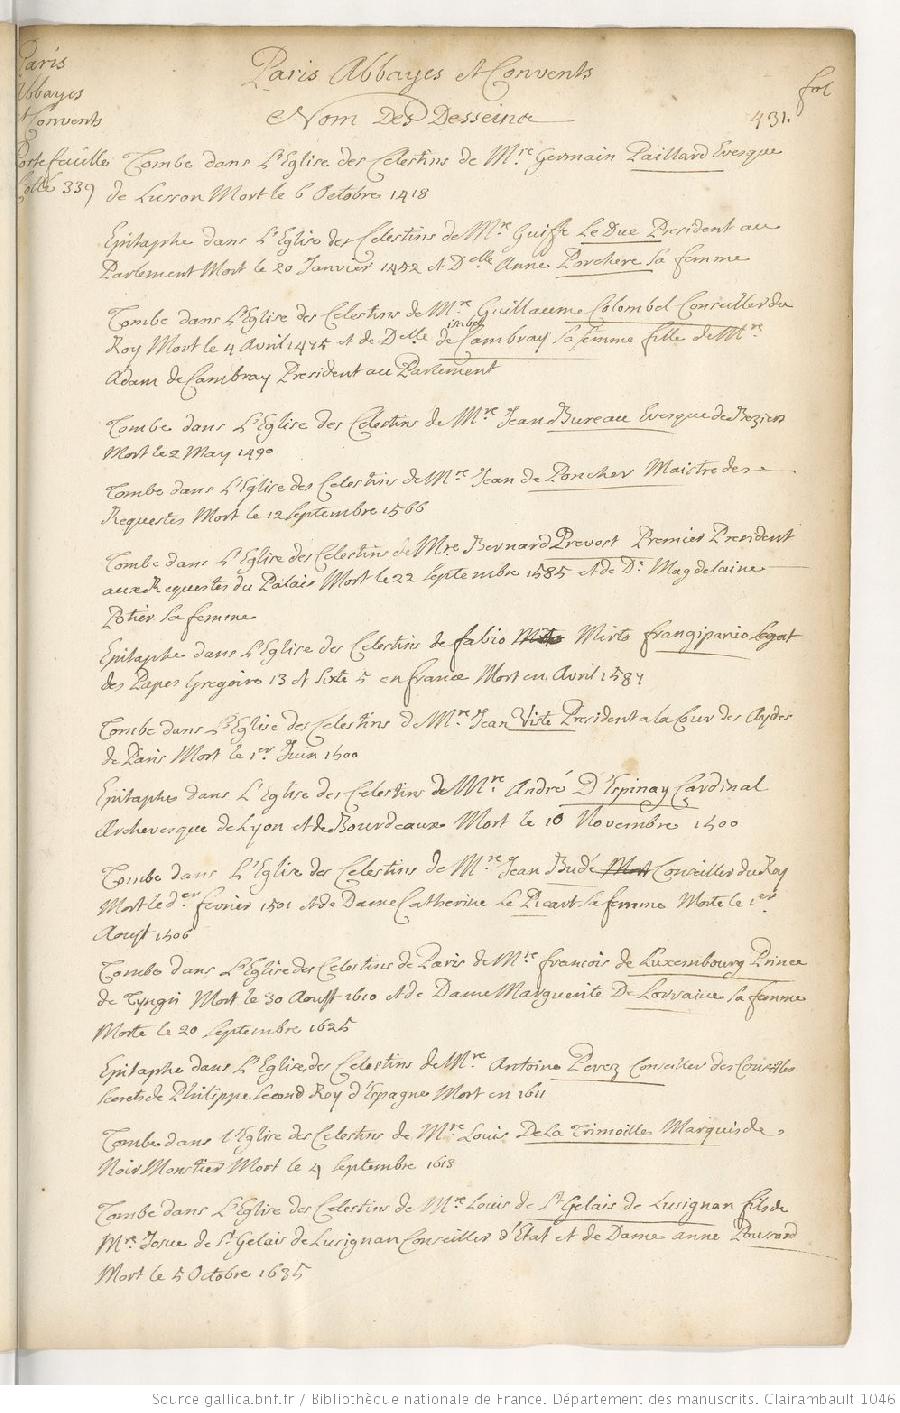 Paris Abbayes et Convents
Nom Des Desseins
Paris
Abbayes
et Convents
Portefeuille
Cotté 339
fol
431.
Tombe dans L'Eglise des Celestins de Mre. Germain Paillard Evesque
de Lusson Mort le 6 Octobre 1418
Epitaphe dans L'Eglise des Celestins de Mre. Le Duc President au
Parlement Mort le 20 Janvier 1452 et Delle Anne Porchere sa femme
Tombe dans L'Eglise des Celestins de Mre. Guillaume Colombel Conseiller du
Roy Mort le 4 Avril 1475 et de Delle de Cambray sa femme fille de Mre
Adam de Cambray President au Parlement
Tombe dans L'Eglise des Celestins de Mre Jean Bureau Evesque de Beziers
Mort le 2 May 1490
Tombe dans L'Eglise des Celestins de Mre. Jean de Poncher Maistre des
Requestes Mort le 12 Septembre 1566
Tombe dans L'Eglise des Celestins de Mre Bernard Prevost Premier President
aux Requestes du Palais Mort le 22 Septembre 1585 et de De Magdelaine
Potier sa femme
Epitaphe dans L'Eglise des Celestins de fabio Mirto frangipanio Legat
des Papes Gregoire 13 et Sixte 5 en france Mort en Avril 1587
Tombe dans L'Eglise des Celestins de Mre Jean Viste President a la Cour des Aydes
de Paris Mort le 1er Juin 1500
Epitaphe dans L'Eglise des Celestins de Mre. André D'Espinay Cardinal
Archevesque de Lyon et de Bourdeaux Mort le 10 Novembre 1500
Tombe dans L'Eglise des Celestins de Mre Jean Budé Conseiller du Roy
Mort le der fevrier 1501 et de Dame Catherine Le Picart sa femme Morte le 1er
Aoust 1506
Tombe dans L'Eglise des Celestins de Paris de Mre francois de Luxembourg Prince
de Tyngri Mort le 30 Aoust 1610 et de Dame Marguerite De Lorraine sa femme
Morte le 20 Septembre 1625
Epitaphe dans L'Eglise des Celestins de Mre Antoine Perez Conseiller des Conseils
secrets de Philippe Second Roy d'Espagne Mort en 1611
Tombe dans L'Eglise des Celestins de Mre Louis De La Trimoille Marquis de
Noir Monstier Mort le 4 Septembre 1613
Tombe dans L'Eglise des Celestins de Mre Louis de St Gelais de Lusignan fils de
Mre Josue de St Gelais de Lusignan Conseiller d'Etat et de Dame anne
Mort le 5 Octobre 1635
Source gallica.bnf.fr / Bibliothèque nationale de France. Département des manuscrits. Clairambault 1046